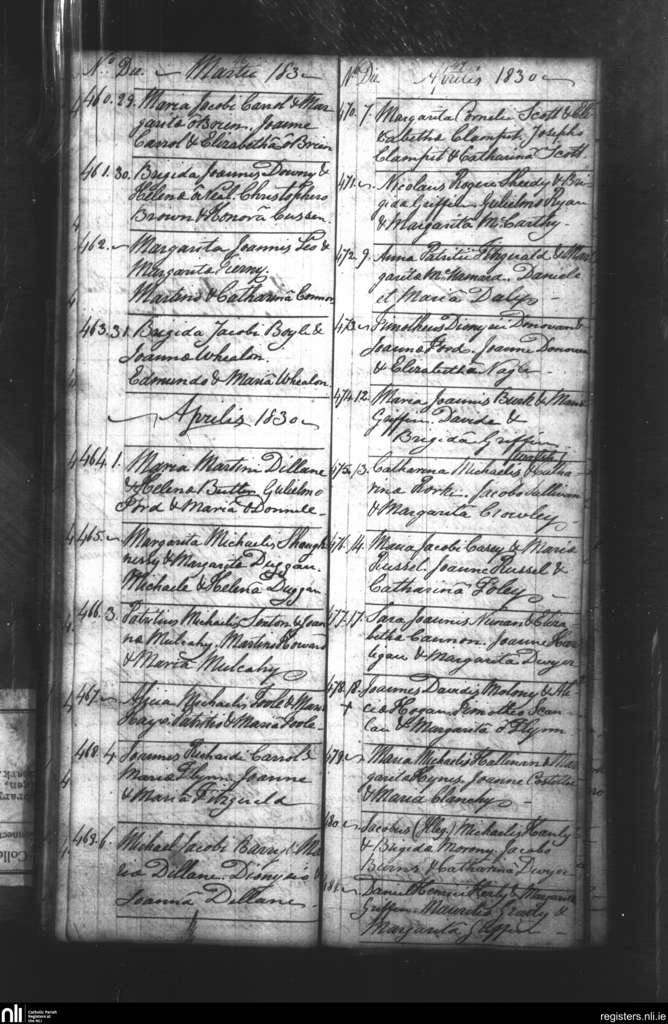 No. Die. Martii 1830
460. 29. Maria Jacobi Carrol & Mar
garita O'Brien. Joanne
Carrol & Elizabetha O'Brien
461. 30. Brigida Joannis Downy &
Helena O'Neal. Christophero
Brown & Honorâ Cussen.
462. Margarita Joannis Leo &
Margarita
Martino & Catharinâ Connor
463. 31. Brigida Jacobi Boyle &
Joanna Whealon.
Edmundo & Mariâ Whealon
Aprilis 1830
464. 1. Maria Martini Dillane
& Helena Gulielmo
Ford & Mariâ O'Donnele
465. Margarita Michaelis Shaugh
nessy & Margarita Duggan.
Michaele & Helenâ Duggan
466. 3. Patritius Michaelis & Joan
na Mulcahy. Martino Howard
& Mariâ Mulcahy
467. Michaelis Toole & Mar
Hays. Patritio & Mariâ Toole
468. 4 Joannes Richardi Carrol &
Maria Flynn. Joanne
& Mariâ Fitzgerald
469. 6. Michael Jacobi Barry & Ma
ria Dillane. Dionysio &
Joannâ Dillane.
No. Die Aprilis 1830
470. 7. Margarita Cornelii Scott & Eli
zabetha Clampit. Josepho
Clampit & Catharinâ Scott
471. Nicolaus Rogeri Sheedy & Bri
gida Griffin. Gulielmo Ryan
& Margaritâ McCarthy.
472. 9. Anna Patritii Fitzgerald & Mar
garita McNamara. Daniele
et Mariâ Daly
473. Timotheus Dionysii Donovan &
Joanna Ford. Joanne Donovan
& Elizabethâ Nagle
474. 12. Maria Joannis Burk & Maria
Griffin. Davide &
Brigidâ Griffin
475. 13. Catharina Michaelis & Catha
rina Rorke. Jacobo Sullivan
& Margaritâ Crowley
476. 14. Maria Jacobi Casey & Maria
Russel. Joanne Russel &
Catharinâ Foley
477. 17. Sara Joannis Nunan & Eliza
betha Cannon. Joanne Har
tigan & Margaritâ Dwyer
478. 18. Joannes Davidis Molony & Ali
cia Hogan. Timotheo Scan
lan & Margaritâ O'Flynn
479. Maria Michaelis Hallinan & Mar
garita Hynes. Joanne Costelloe
& Mariâ Clanchy
480. Jacobus (Illeg.) Michaelis Hanly
& Brigida Morony. Jacobo
Burns & Catharinâ Dwyer
481. Daniel Henrici Herly & Margarita
Griffin. Mauritio Grady &
Margaritâ Griffin
nli
Catholic Parish
Registers at
the NLI
registers.nli.ie